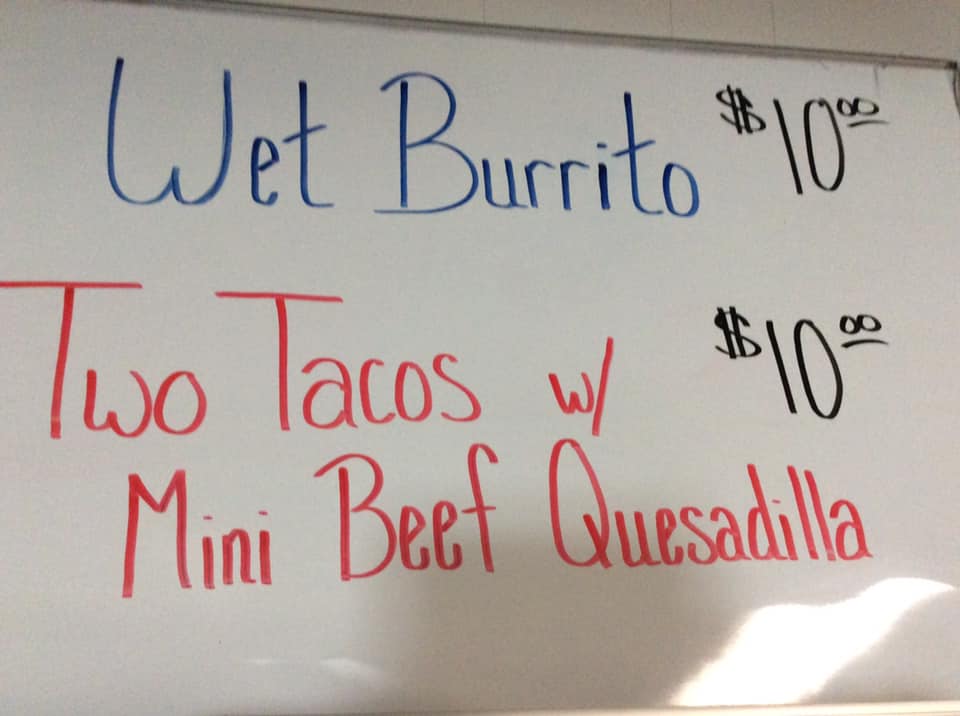 Wet Burrito $10.00
Two Tacos w/ $10.00
Mini Beef Quesadilla